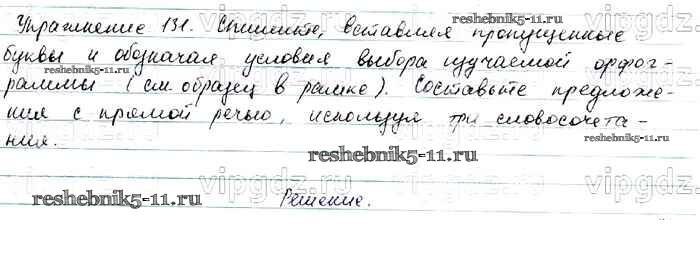 Упражнение 131. Спишите, вставляя пропущенные
буквы и обозначая условия выбора изучаемой орфог-
раммы (см. образец в рамке). Составьте предложе-
ния с прямой речью, используя три словосочета-
ния.
Решение.
reshebnik5-11.ru
reshebnik5-11.ru
reshebnik5-11.ru
reshebnik5-11.ru
reshebnik5-11.ru
reshebnik5-11.ru
vipgdz.ru
vipgdz.ru
vipgdz.ru
vipgdz.ru
vipgdz.ru
vipgdz.ru